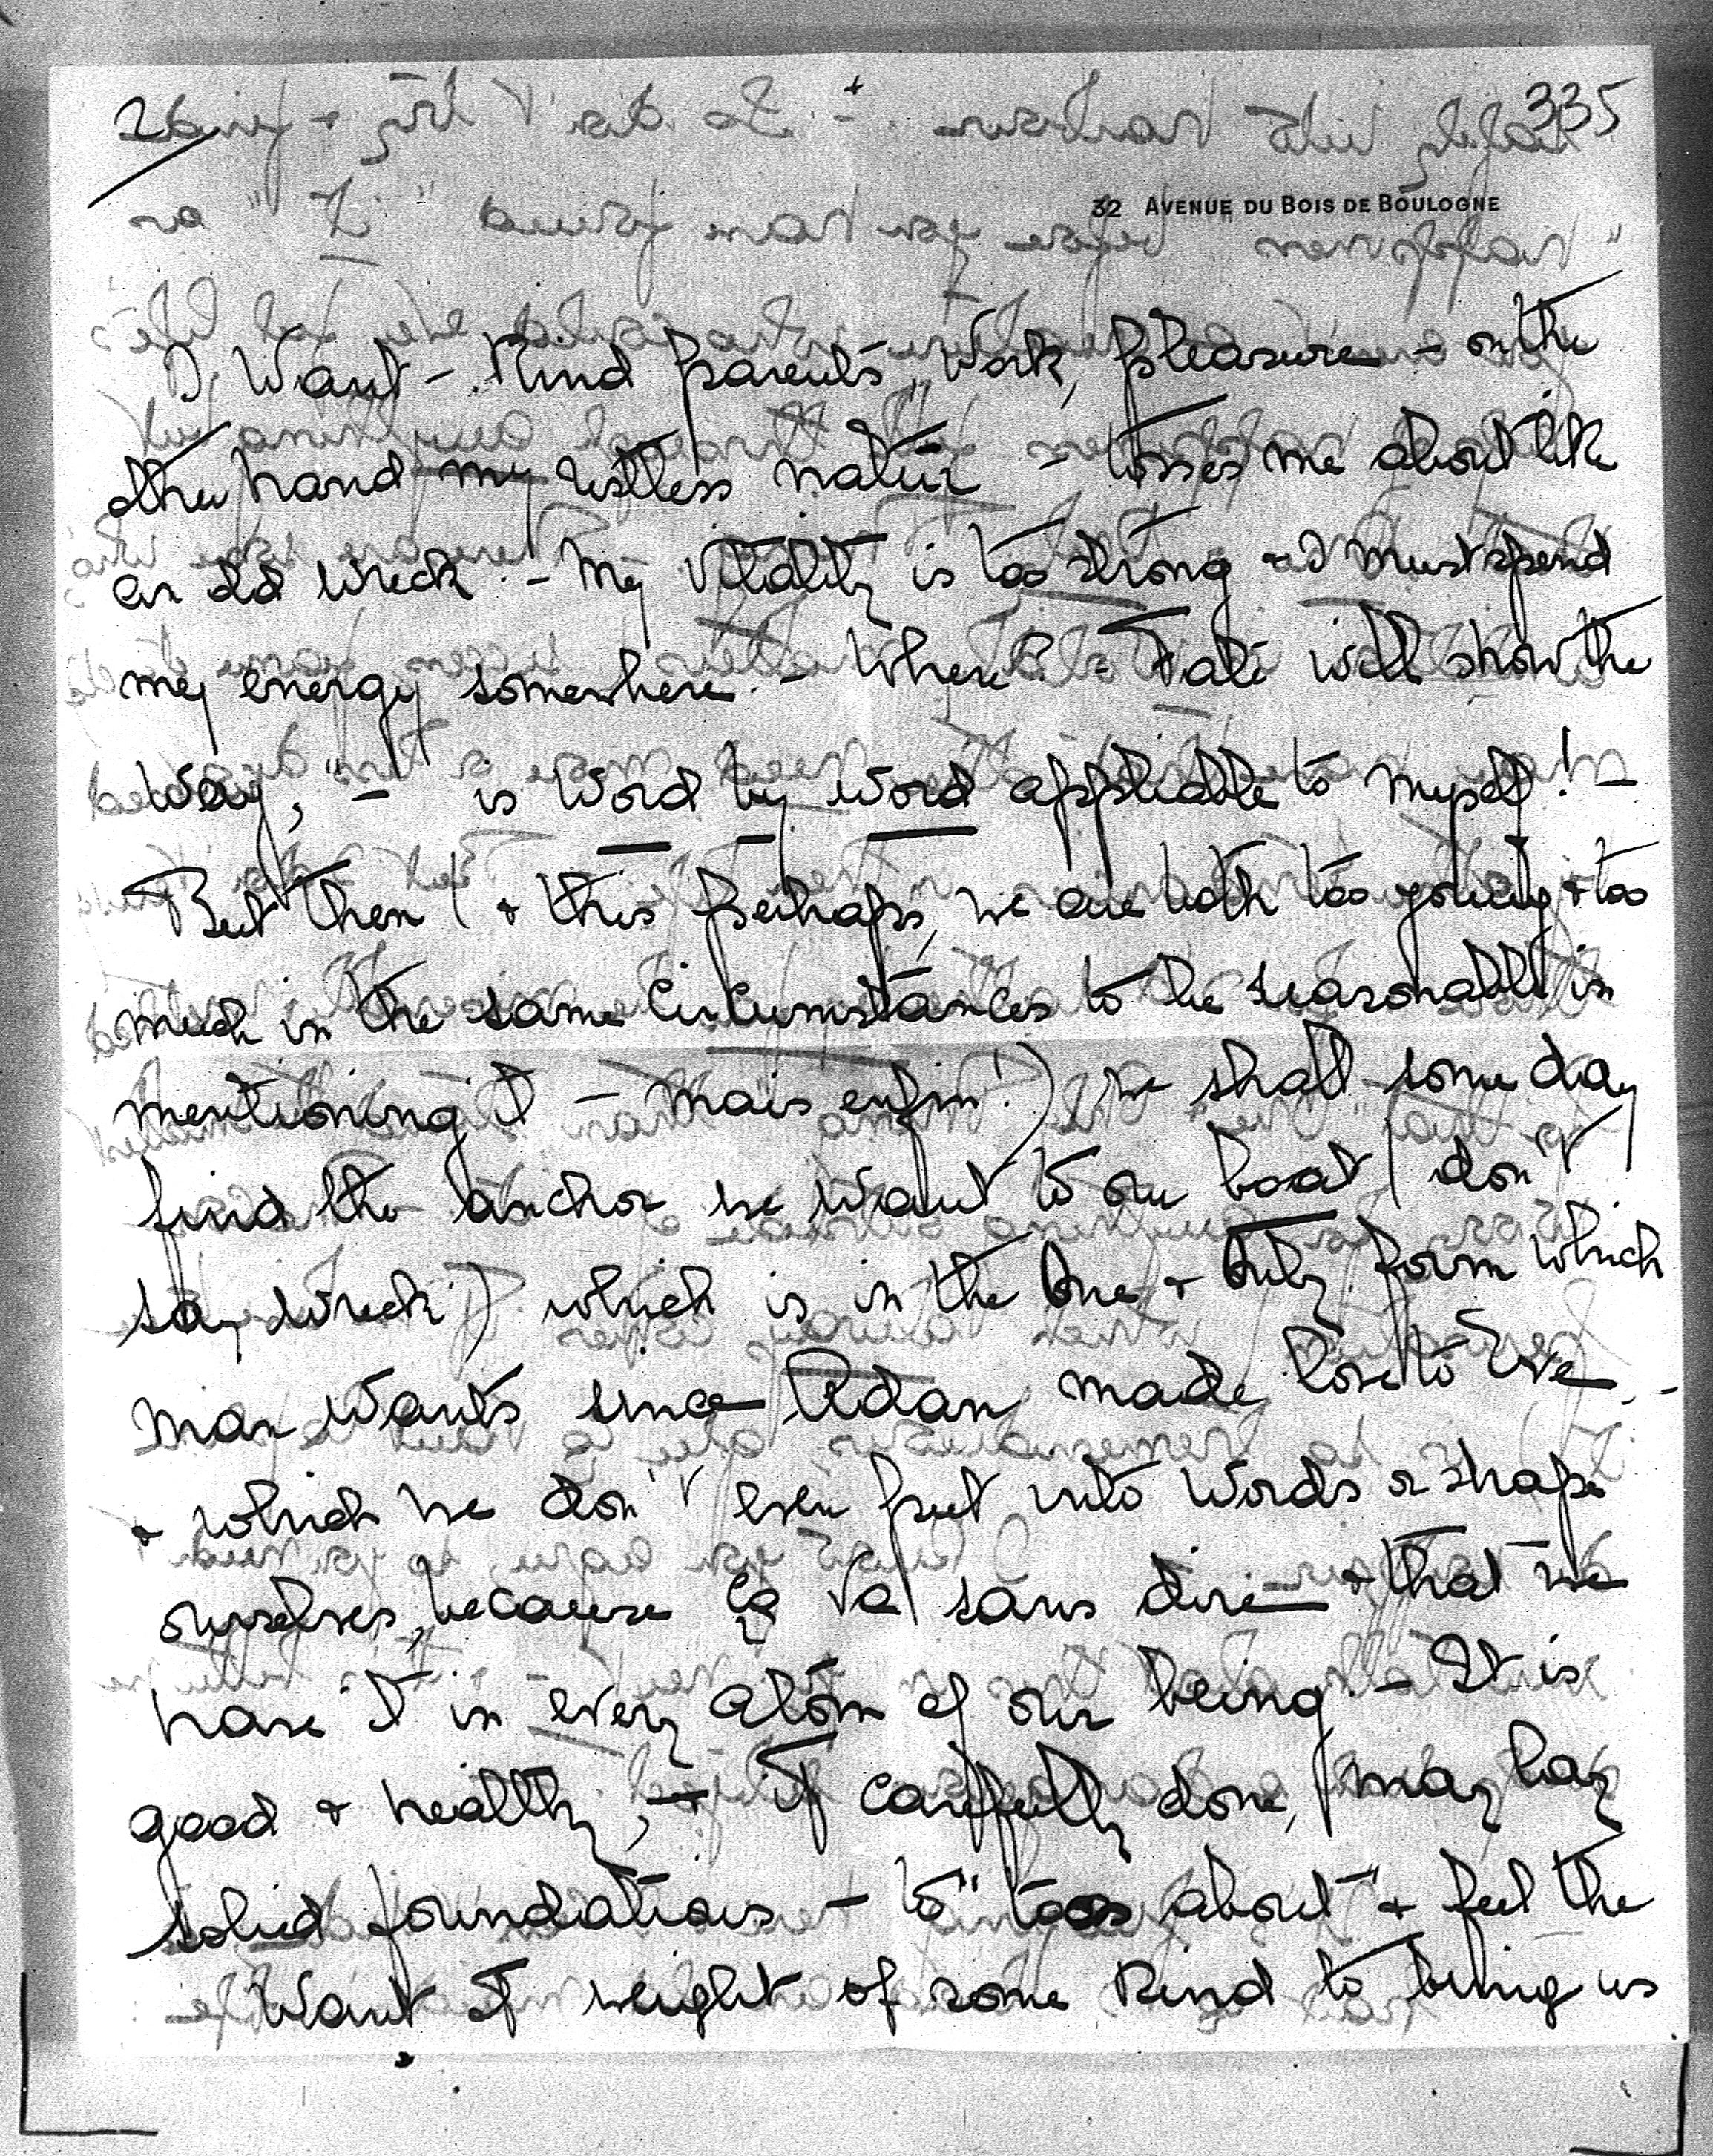 26
335
32 AVENUE DU BOIS DE BOULOGNE
I want - Kind parents, work, pleasure - on the
other hand my restless nature - tosses me about like
an old wreck. - My vitality is too strong & I must spend
my energy somewhere. - Where? = Fate will show the
way," - is word by word appliable to myself! -
But then (& this perhaps, we are both too young & too
much in the same circumstances to be reasonable in
mentioning it - mais enfin!) we shall some day
find the anchor we want to our boat (don't
say wreck!) which is in the One & Only form which
man wants since Adam made love to Eve, -
& which we don't even put into words or shape
ourselves, because ça va sans dire & that we
have it in every atom of our being. - It is
good & healthy, - & if carefully done, may lay
solid foundations - to "toss about" & feel the
want of weight of some kind to bring us